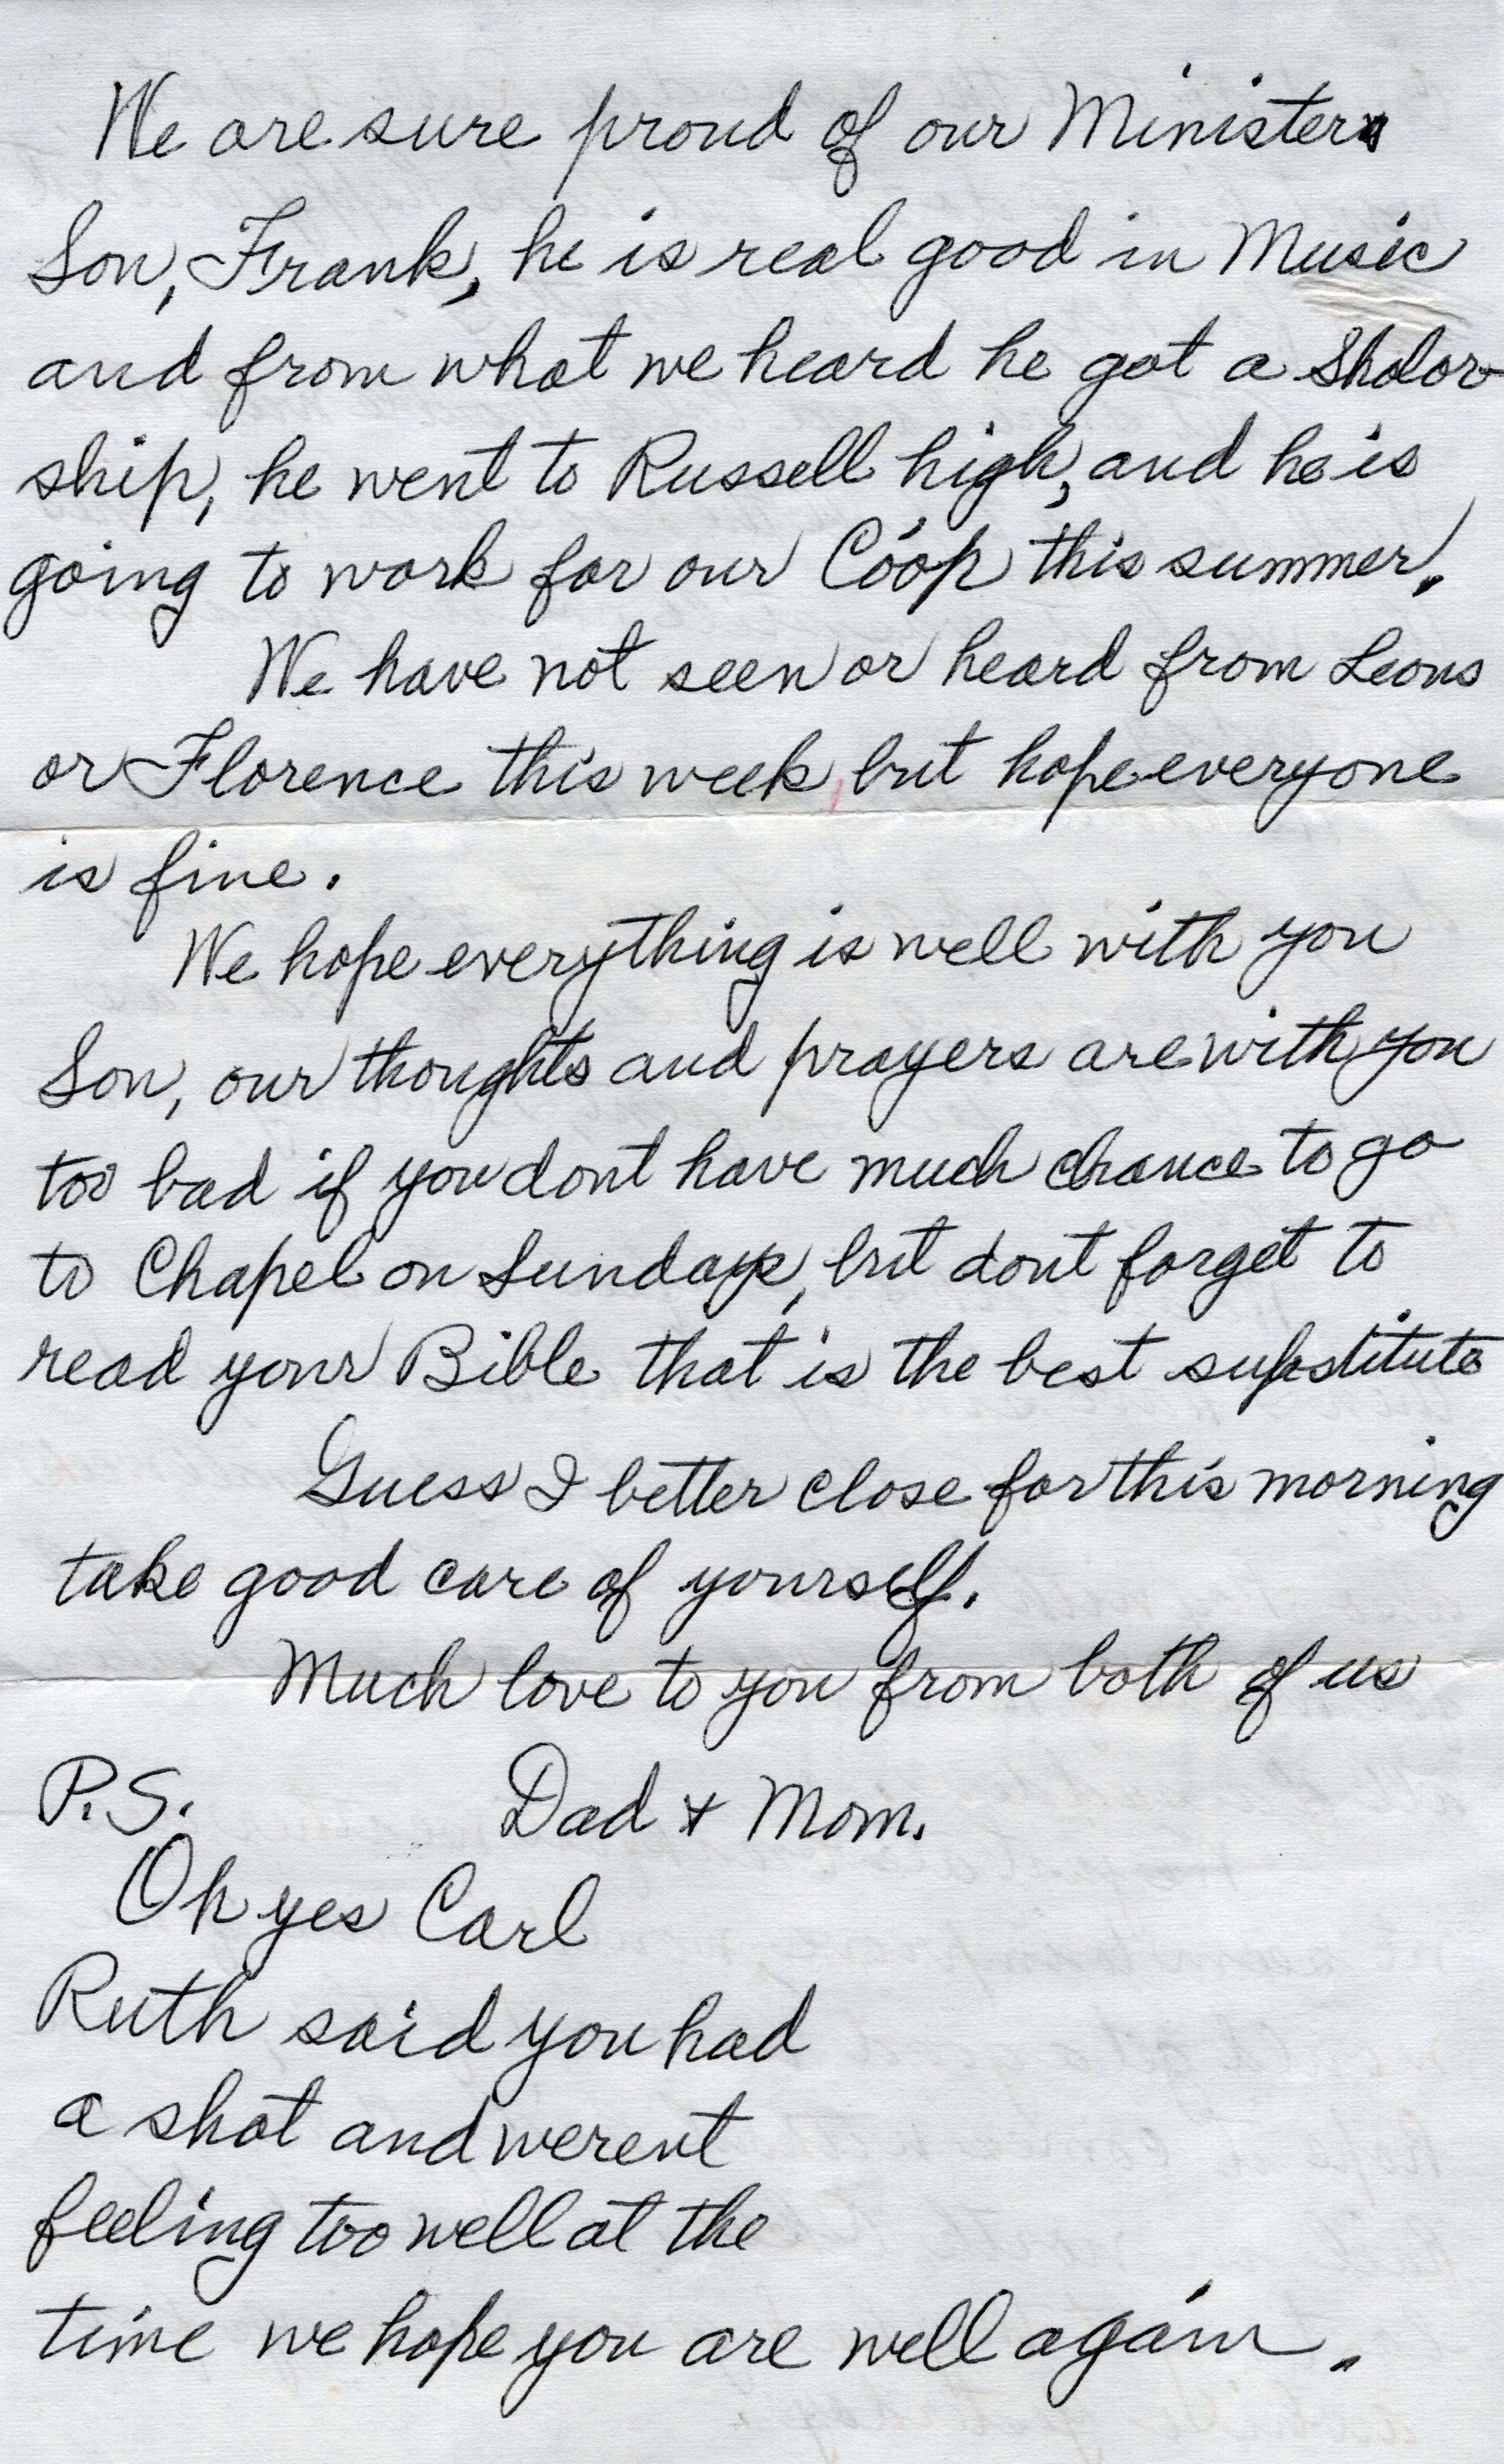 We are sure proud of our Ministers
Son, Frank, he is real good in Music
and from what we heard he got a Sholor
ship, he went to Russell high, and he is
going to work for our Coop this summer.
We have not seen or heard from Leons
or Florence this week, but hope everyone
is fine.
We hope everything is well with you
Son, our thoughts and prayers are with you
too bad if you dont have much chance to go
to Chapel on Sundays, but dont forget to
read your Bible that is the best supstitute
Guess I better close for this morning
take good care of yourself.
Much love to you from both of us
P.S. Dad + Mom.
Oh yes Carl
Ruth said you had
a shot and werent
feeling too well at the
time we hope you are well again.